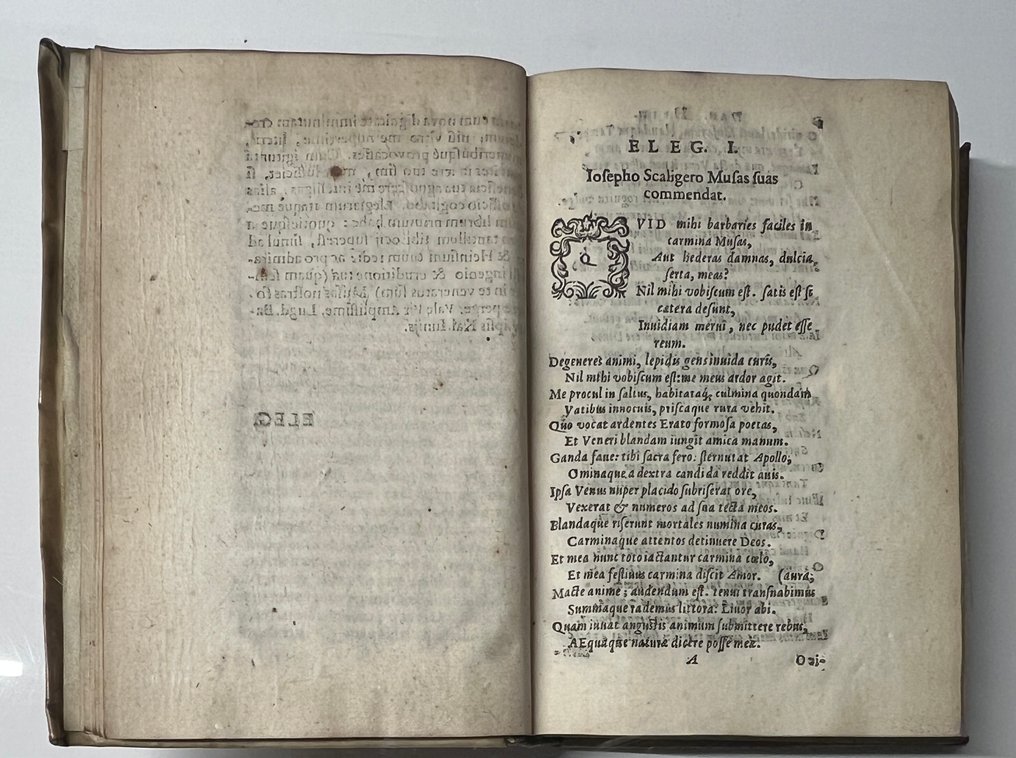 ELEG. I.
Iosepho Scaligero Musas suas
commendat.
QVID mihi barbaries faciles in
carmina Musas,
Aut hederas damnas, dulcia
serta, meas?
Nil mihi vobiscum est. satis est si
cætera desunt,
Inuidiam merui, nec pudet esse
reum.
Degeneres animi, lepidis gens inuida curis,
Nil mihi vobiscum est: me meus ardor agit.
Me procul in saltus, habitataq́; culmina quondam
Vatibus innocuis, priscaque rura vehit.
Quo vocat ardentes Erato formosa poetas,
Et Veneri blandam iungit amica manum.
Ganda faue: tibi sacra fero: sternutat Apollo,
Ominaque a dextra candida reddit auis.
Ipsa Venus nuper placido subriserat ore,
Vexerat & numeros ad sua tecta meos.
Blandaque riserunt mortales numina curas,
Carminaque attentos detinuere Deos.
Et mea nunc toto iactantur carmina cœlo,
Et mea festiuus carmina discit Amor. (aura;
Macte anime; audendum est. tenui transnabimus
Summaque rademus littora: Liuor abi.
Quam iuuat angustis animum submittere rebus,
AEquaque naturæ dicere posse meæ.
A Oci-